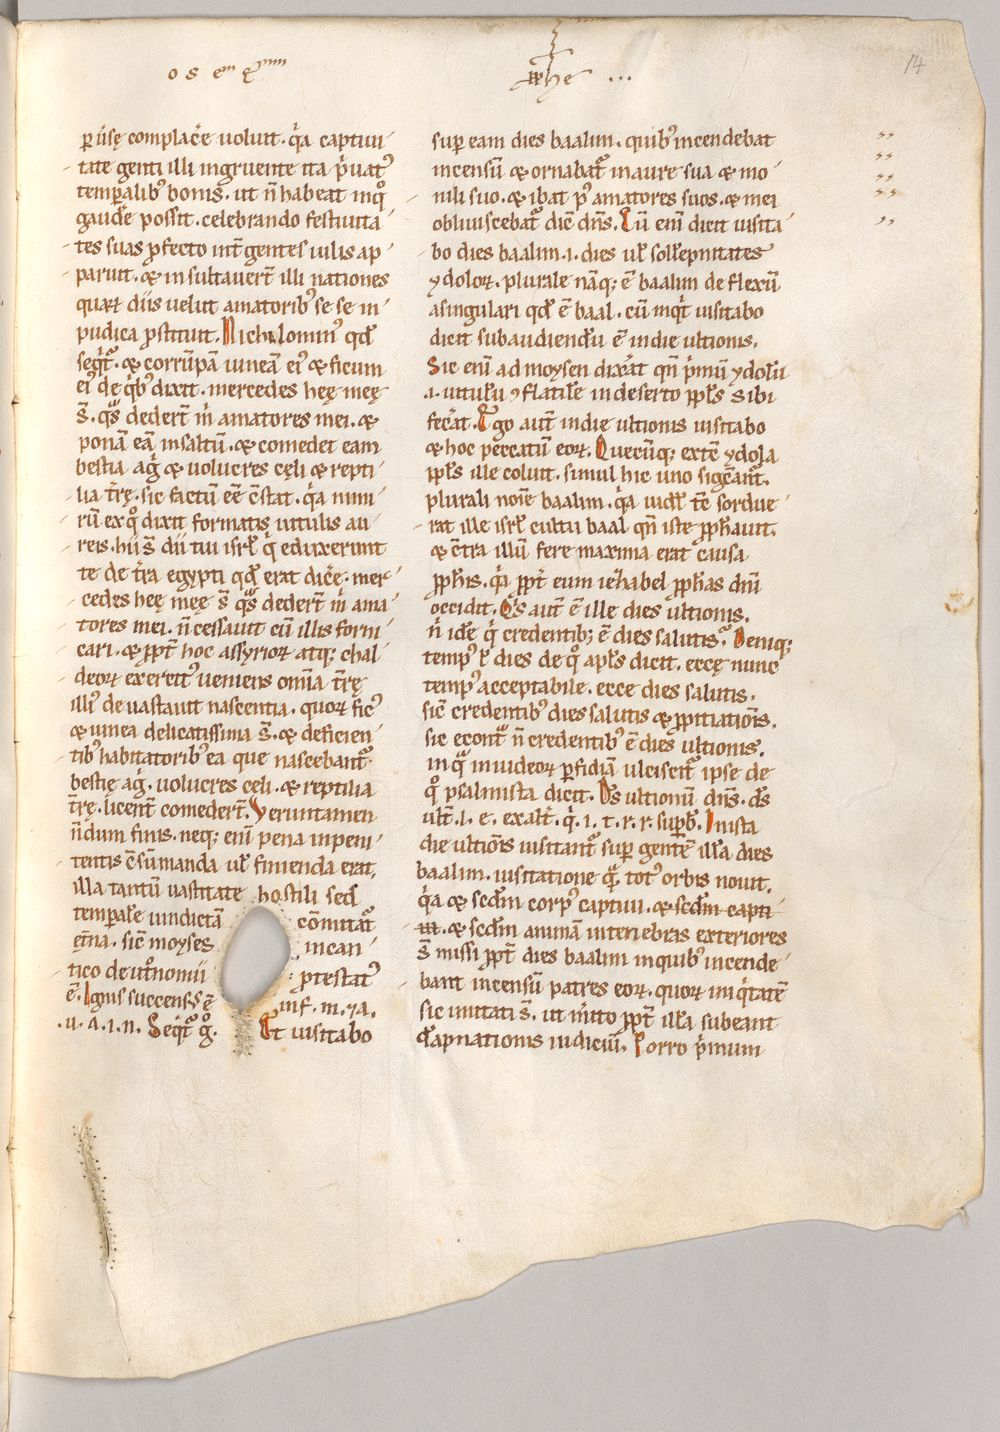 14
ꝑ uīsę complac̄e uoluit. q̄a captiui
tate genti illi ingruente ita p̄uat᷒
temꝑalib᷒ bonis. ut ñ habeat in q̊
gaud̄e possit. celebrando festiuita
tes suas ꝓfecto int̄ gentes iulis ap
paruit. & insultauert̄ illi nationes
quaꝝ diis uelut amatorib᷒ se se in
pudica ꝓstituit. Nichilomin᷒ qđ
seq̄t᷑. & corrūpā iuneā ei᷒ & ficum
ei᷒ de q̄b᷒ dixit. mercedes heę meę
s̄. q̄s dedert̄ m̄ amatores mei. &
ponā eā in saltū. & comedet eam
bestia aḡ & uolucres cęli & repti
lia t̄rę. sic factū eē c̄stat. q̄a nimi
rū ex q̊ dixit formatis uitulis au
reis. hii s̄ dii tui isrł q̄ eduxerunt
te de t̄ra egypti qđ erat dic̄e. mer
cedes heę meę s̄ q̄s dedert̄ m̄ ama
tores mei. ñ cessauit cū illis forni
cari. & ꝓpt̄ hoc assyrioꝝ atq; chal
deoꝝ exercit᷒ ueniens om̄ia t̄rę
illi᷒ deuastauit nascentia. quoꝝ fic᷒
& uinea delicatissima s̄. & deficien
tib᷒ habitatorib᷒ ea que nascebant᷑
bestię aḡ. uolucres celi. & reptilia
t̄rę. licent̄ comedert̄. Veruntamen
ñdum finis. neq; enī pena inpeni
tentis c̄sūmanda uł finienda erat.
illa tantū uastitate hostili sed
temꝑałe uindictā cōmitat᷑
et̄na. sic̄ moyses in can
tico deut̊nomii ꝓtestat᷒
ē. Ignis succensus ē in f. m. ⁊ a.
.u. a. i. n. Seq̄t᷑ g̊. Et uisitabo
suꝑ eam dies baalim. quib᷒ incendebat
incensū & ornabat᷑ inaure sua & mo
nili suo. & ibat p᷒ amatores suos. & mei
obliuiscebat᷑ dic̄ dn̄s. Cū enī dicit uisita
bo dies baalim .i. dies uł sollēpnitates
ydoloꝝ. plurale nāq; ē baalim deflexū
a singulari qđ ē baal. cū inq̄t uisitabo
dicit subaudiendū ē in die ultionis.
Sic enī ad moysen dixāt qn̄ p̄mū ydolū
.i. uitulū ꝯflatiłe in deserto ppłs sibi
fec̄at. Ego aut̄ in die ultionis uisitabo
& hoc peccatū eoꝝ. Quecūq; ext̄ ydola
ppłs ille coluit. simul hic uno siḡcant᷑.
plurali noīe baalim. q̄a uidł tc̄ sordue
rat ille isrł cultu baal qn̄ iste ꝓph̄auit.
& c̄tra illū fere maxima erat causa
ꝓph̄is. q̄a ꝓpt̄ eum iezhabel ꝓph̄as dn̄i
occidit. Q̄s aut̄ ē ille dies ultionis.
ñ idē q̄ credentib; ē dies salutis᷑. Deniq;
temp᷒ ł dies de q̊ apłs dicit. ecce nunc
temp᷒ acceptabile. ecce dies salutis.
sic̄ credentib᷒ dies salutis & ꝓpitiatiōis.
sic econt̄ ñ credentib᷒ ē dies ultionis.
in q̄ in iudeoꝝ ꝑfidiā ulciscit᷑ ipse de
q̊ psalmista dicit. D̄s ultionū dn̄s. d̄s
ult̄. l. e. exalt̄. q̄. i. t. r. r. suꝑb̄. In ista
die ultiōis uisitant᷑ suꝑ gentē illā dies
baalim. uisitatione q̄ tot᷒ orbis nouit.
q̄a & scdm corp᷒ captiui. & scdm capti
ui. & scdm animā in tenebras exteriores
s̄ missi ꝓpt̄ dies baalim in quib᷒ incende
bant incensū patres eoꝝ. quoꝝ iniq̄tatē
sic imitati s̄. ut m̄ito ꝓpt̄ illā subeant
dāpnationis iudiciū. Porro p̄mum